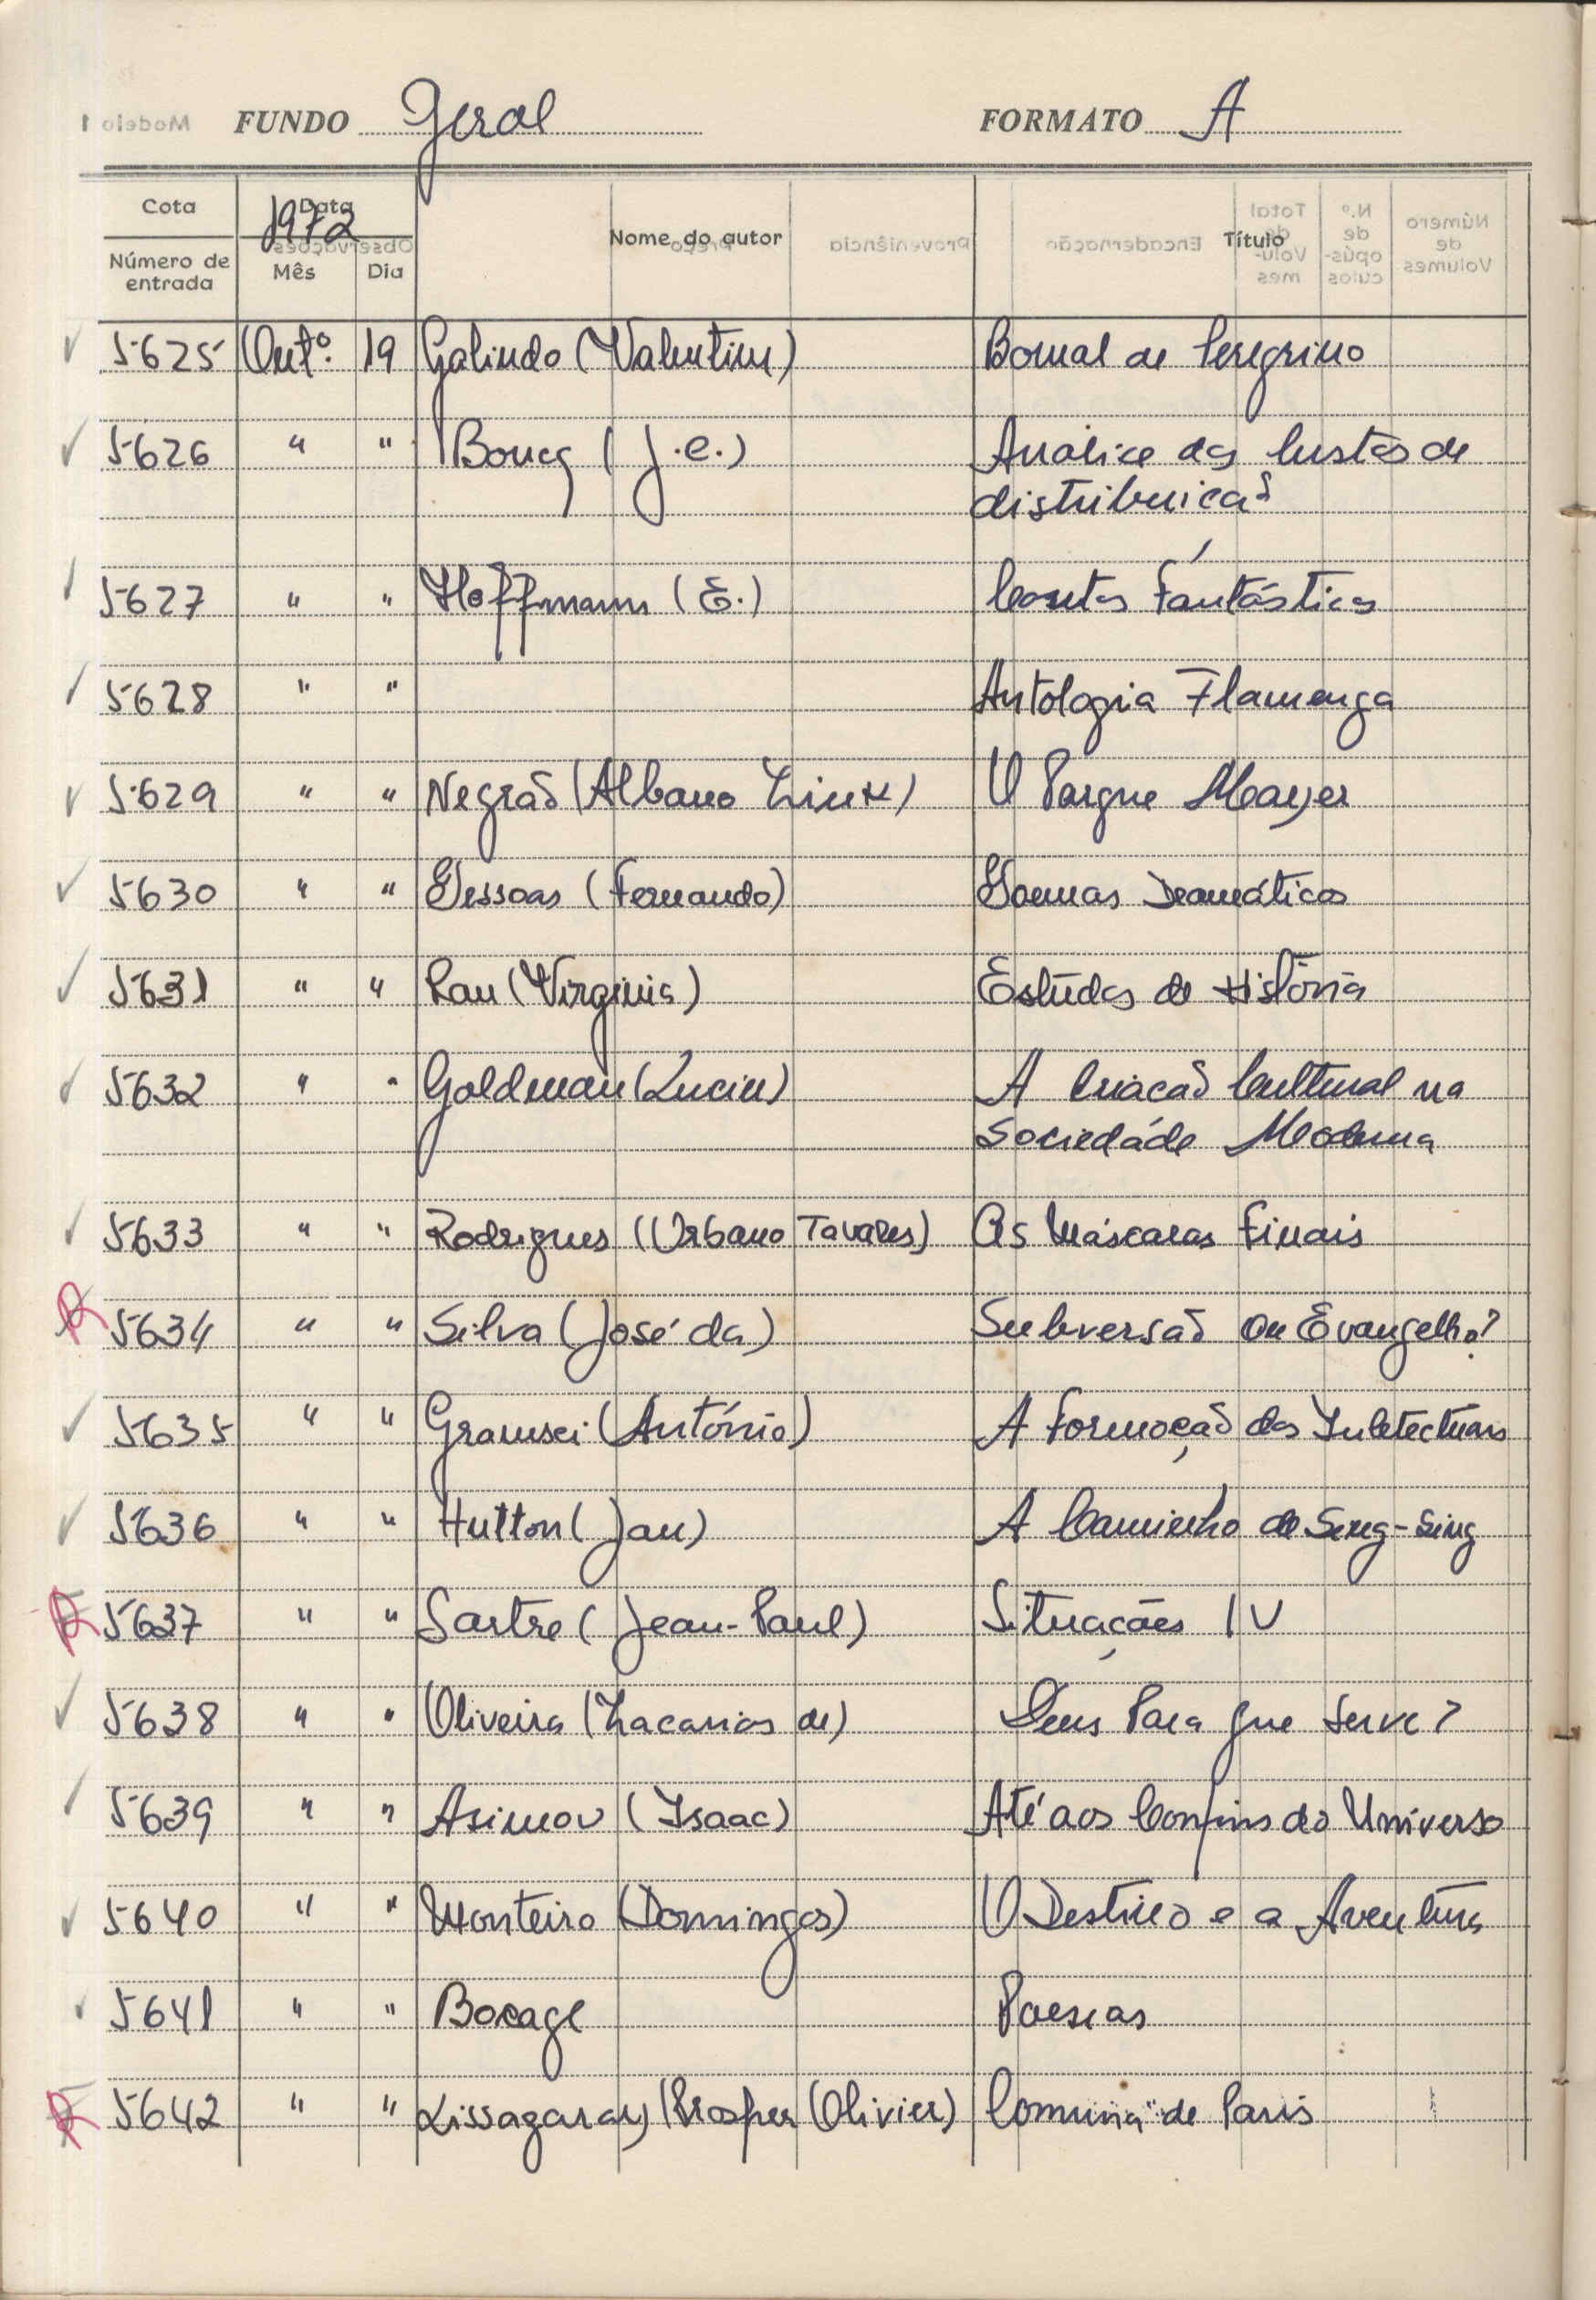 FUNDO Geral FORMATO A
Modelo 1
Cota Data 1972 Nome do autor Título
Número de entrada Mês Dia
Observações Preço Proveniência Encadernação Total de Volumes N.º de opúsculos Número de Volumes
5625 Outº. 19 Galindo (Valentim) Bornal de Peregrino
5626 " " Boucq (J.C.) Análise dos Custos de
distribuicão
5627 " " Hoffmann (E.) Contos Fántásticos
5628 " " Antologia Flamenga
5629 " " Negrão (Albano Lima) O Parque Mayer
5630 " " Pessoas (Fernando) Poemas Dramáticos
5631 " " Rau (Virginia) Estúdos de História
5632 " " Goldman (Lucien) A Criacão Cultural na
Sociedáde Moderna
5633 " " Rodrigues (Urbano Tavares) As Máscaras Finais
R 5634 " " Silva (José da) Subversão ou Evangelho?
5635 " " Gramsci (António) A Formoção dos Inteletectuais
5636 " " Hutton (Jan) A Caminho de Sing-Sing
R 5637 " " Sartre (Jean-Paul) Situações IV
5638 " " Oliveira (Zacarias de) Deus Para que Serve?
5639 " " Asimov (Isaac) Até aos Confins do Universo
5640 " " Monteiro (Domingos) O Destino e a Aventura
5641 " " Bocage Poesias
R 5642 " " Lissagaray (Prosper (Olivier) Comuna" de Paris